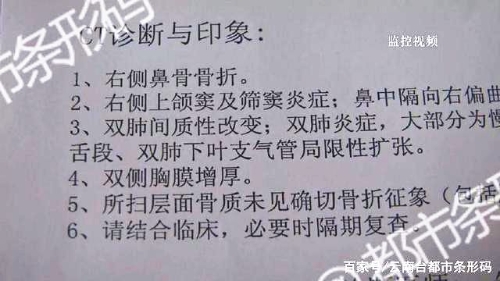 监控视频
CT诊断与印象:
1、右侧鼻骨骨折。
2、右侧上颌窦及筛窦炎症；鼻中隔向右偏曲
3、双肺间质性改变；双肺炎症，大部分为慢
舌段、双肺下叶支气管局限性扩张。
4、双侧胸膜增厚。
5、所扫层面骨质未见确切骨折征象（包括
6、请结合临床，必要时隔期复查。
都市条形码
@都市条形码
百家号/云南台都市条形码